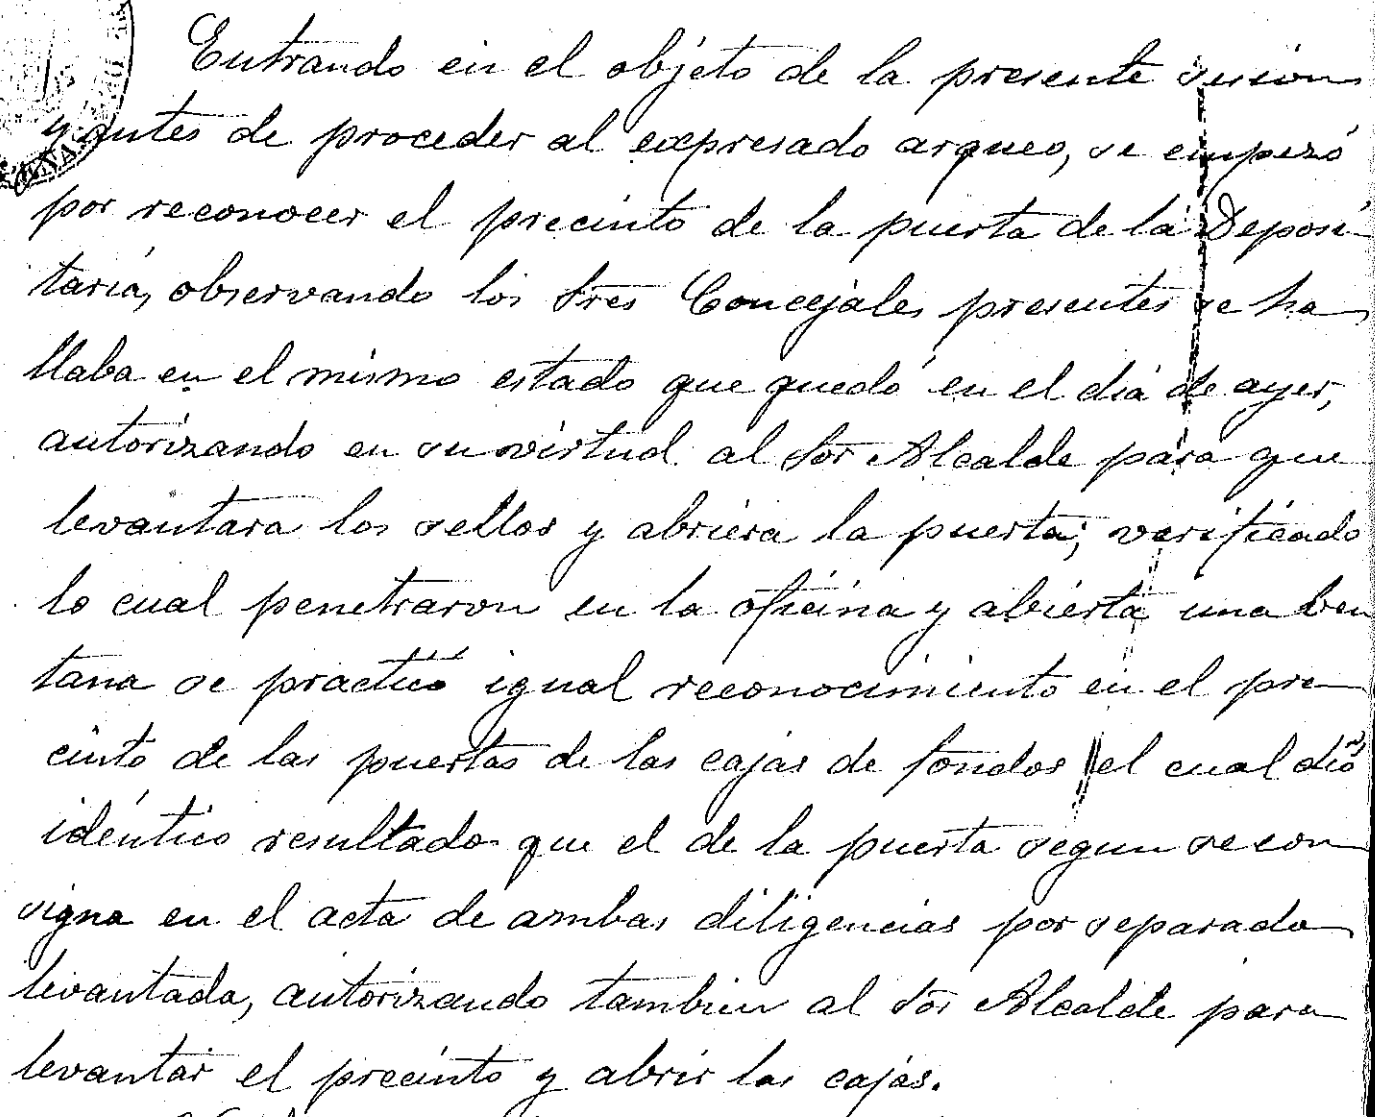 Entrando en el objeto de la presente sesion
y antes de proceder al expresado arqueo, se empezó
por reconocer el precinto de la puerta de la Deposi-
taria, observando los tres Concejales presentes se ha
llaba en el mismo estado que quedó en el dia de ayer,
autorizando en su virtud al Sor Alcalde para que
levantara los sellos y abriera la puerta; verificado
lo cual penetraron en la oficina y abierta una ben
tana se practicó igual reconocimiento en el pre
cinto de las puertas de las cajas de fondos el cual dió
idéntico resultado que el de la puerta segun se con
signa en el acta de ambas diligencias por separado
levantada, autorizando tambien al Sor Alcalde para
levantar el precinto y abrir las cajas.